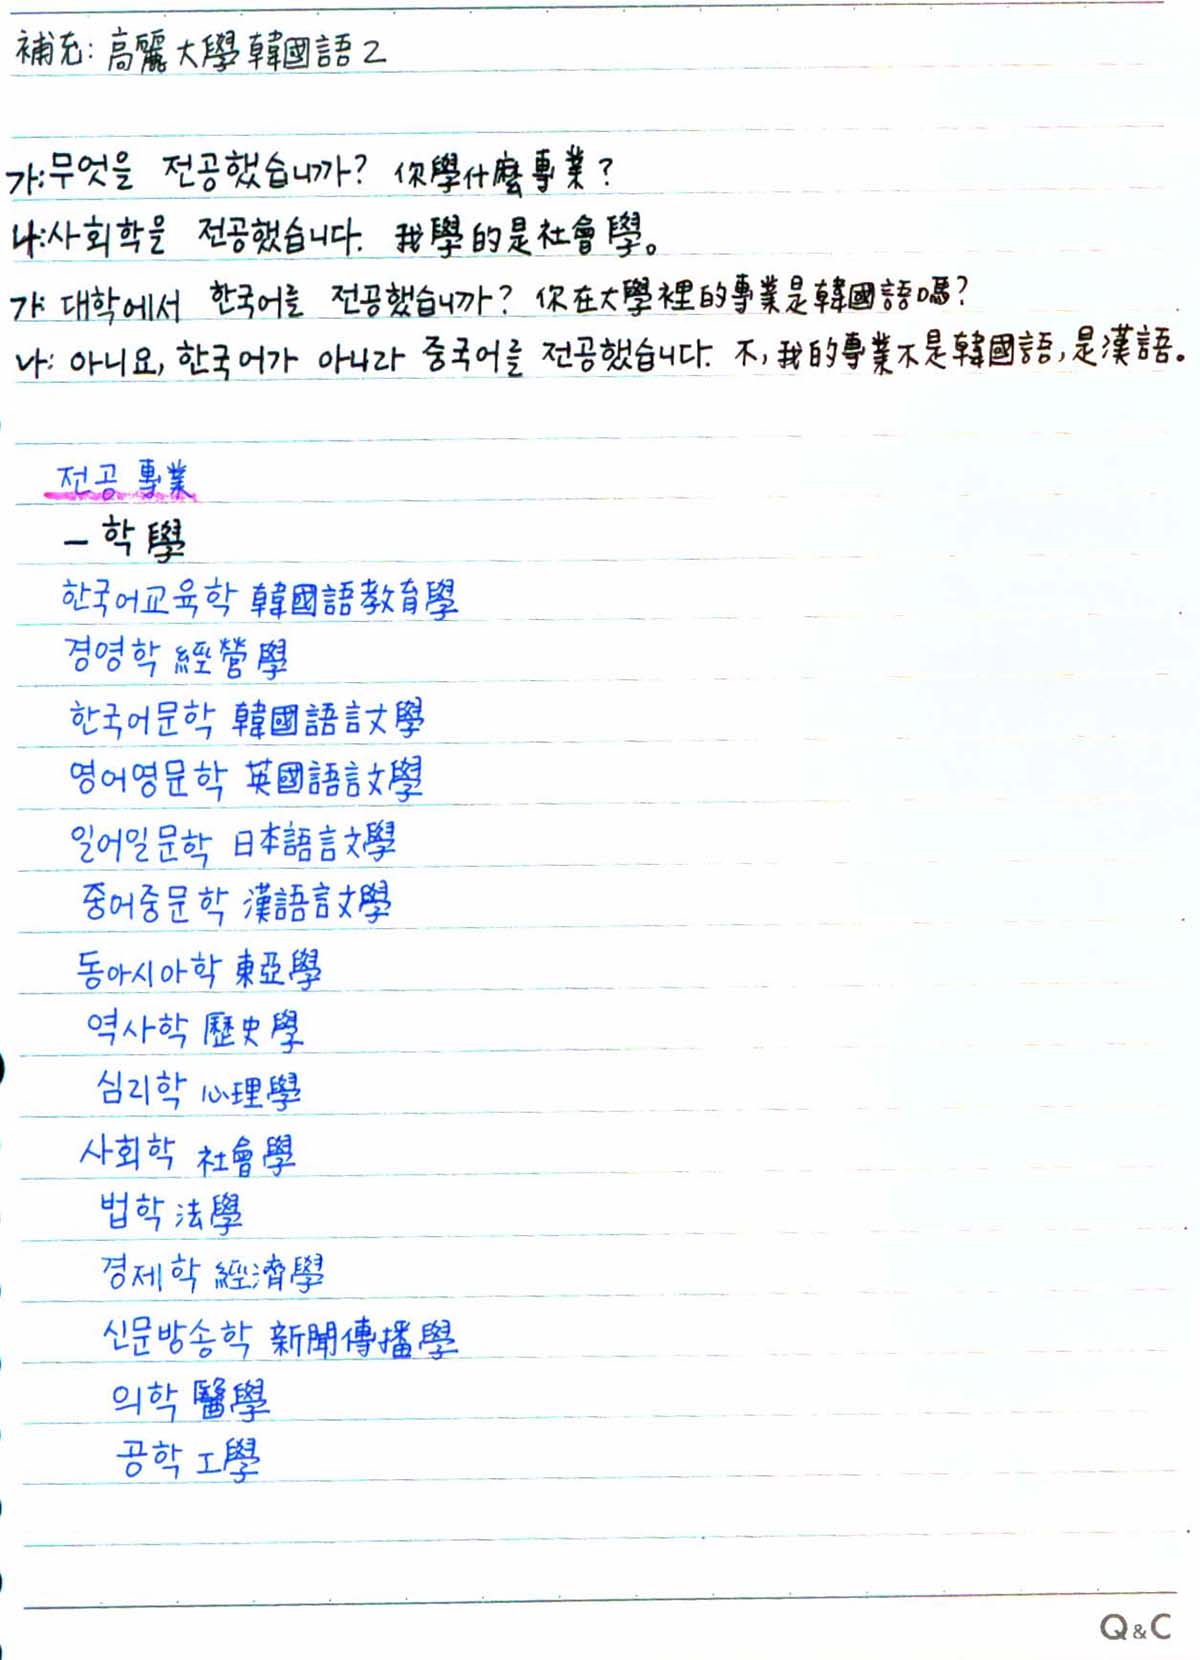 補充: 高麗大學韓國語2
가:무엇을 전공했습니까? 你學什麼專業?
나:사회학을 전공했습니다. 我學的是社會學。
가: 대학에서 한국어를 전공했습니까? 你在大學裡的專業是韓國語嗎?
나: 아니요, 한국어가 아니라 중국어를 전공했습니다. 不,我的專業不是韓國語,是漢語。
전공 專業
－학 學
한국어교육학 韓國語教育學
경영학 經營學
한국어문학 韓國語言文學
영어영문학 英國語言文學
일어일문학 日本語言文學
중어중문학 漢語言文學
동아시아학 東亞學
역사학 歷史學
심리학 心理學
사회학 社會學
법학 法學
경제학 經濟學
신문방송학 新聞傳播學
의학 醫學
공학 工學
Q&C